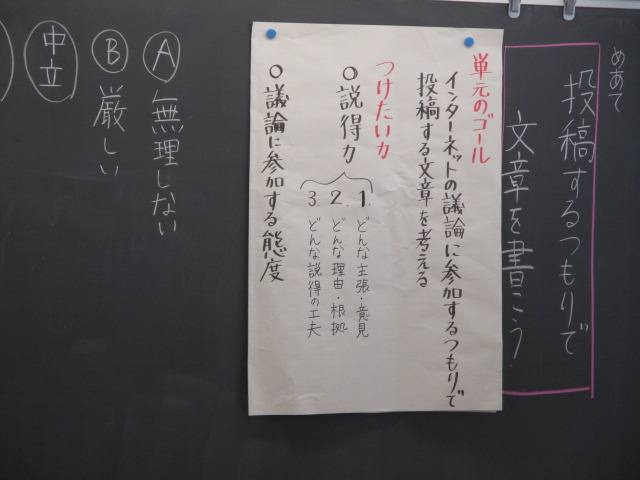 めあて
投稿するつもりで
文章を書こう
単元のゴール
インターネットの議論に参加するつもりで
投稿する文章を考える
つけたい力
○説得力
1. どんな主張・意見
2. どんな理由・根拠
3. どんな説得の工夫
○議論に参加する態度
Ⓐ 無理しない
Ⓑ 厳しい
中立